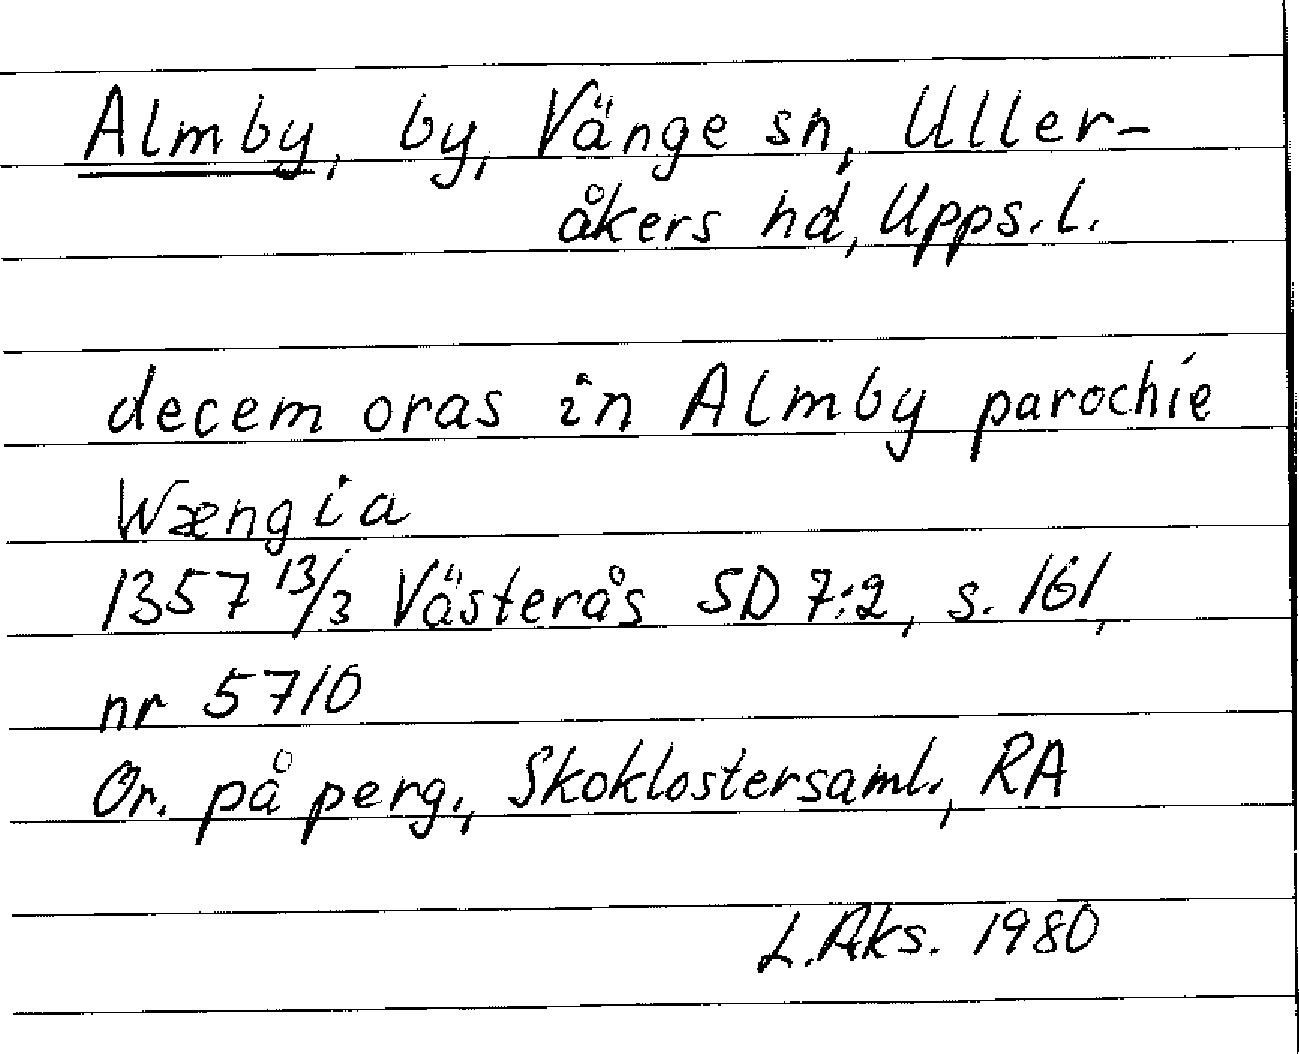 Almby, by, Vänge sn, Uller-
åkers hd, Upps. l.
decem oras in Almby parochie
Wængia
1357 13/3 Västerås SD 7:2, s. 161,
nr 5710
Or. på perg., Skoklostersaml., RA
L. Aks. 1980